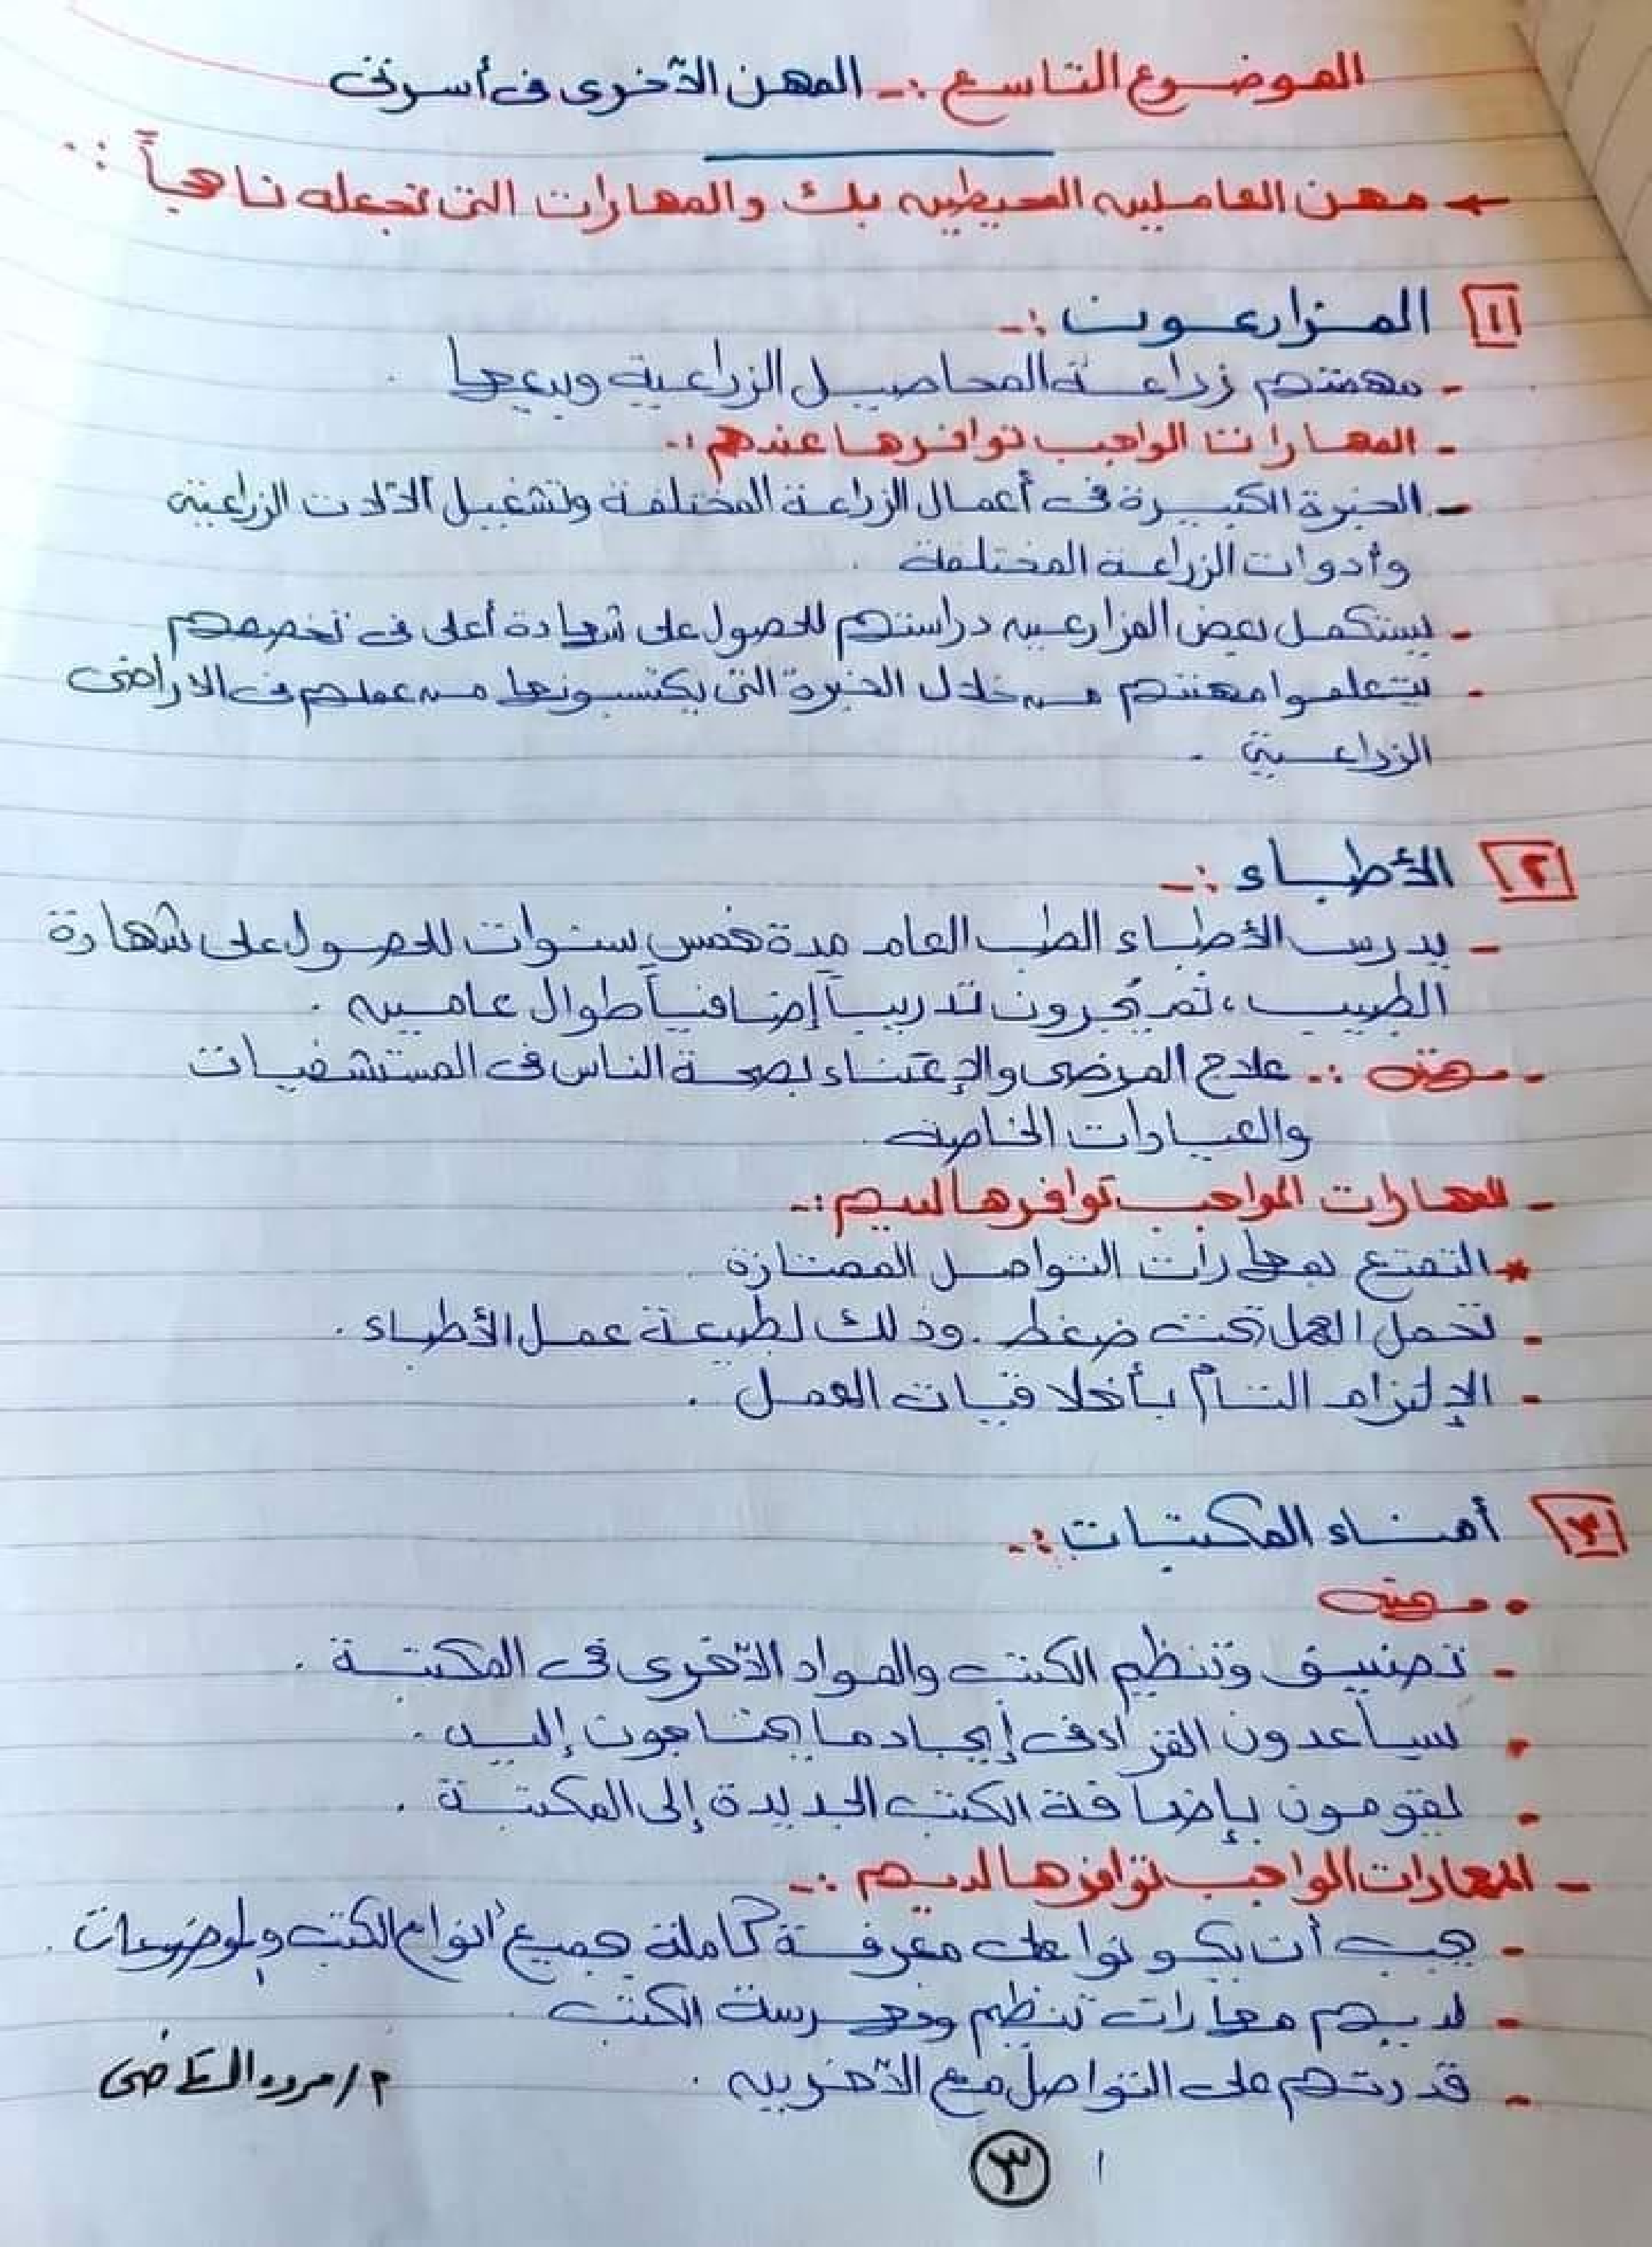 الموضوع التاسع :- المهن الآخرى فى أسرتى
← مهن العاملين المحيطين بك والمهارات التى تجعله ناجحاً ::
١ المزارعون :-
- مهمتهم زراعة المحاصيل الزراعية وبيعها .
- المهارات الواجب توافرها عندهم :-
- الخبرة الكبيرة فى أعمال الزراعة المختلفة وتشغيل الآلات الزراعية
وأدوات الزراعة المختلفة .
- يستكمل بعض المزارعين دراستهم للحصول على شهادة أعلى فى تخصصهم
- يتعلموا مهنتهم من خلال الخبرة التى يكتسبونها من عملهم فى الاراضى
الزراعية .
٢ الأطباء :-
- يدرس الأطباء الطب العام مدة خمس سنوات للحصول على شهادة
الطبيب ، ثم يجرون تدريباً إضافياً طوال عامين .
- مهنته :- علاج المرضى والإعتناء بصحة الناس فى المستشفيات
والعيادات الخاصة .
- المهارات الواجب توافرها لديهم :-
* التمتع بمهارات التواصل الممتازة .
- تحمل العمل تحت ضغط . وذلك لطبيعة عمل الأطباء .
- الإلتزام التام بأخلاقيات العمل .
٣ أمناء المكتبات :-
• مهنته
- تصنيف وتنظيم الكتب والمواد الآخرى فى المكتبة .
- يساعدون القراء فى إيجاد ما يحتاجون إليه .
- يقومون بإضافة الكتب الجديدة إلى المكتبة .
- المهارات الواجب توافرها لديهم :-
- يجب أن يكونوا على معرفة كاملة بجميع أنواع الكتب والموضوعات .
- لديهم مهارات تنظيم وفهرسة الكتب .
- قدرتهم على التواصل مع الآخرين .
م/مروه القاضى
٣